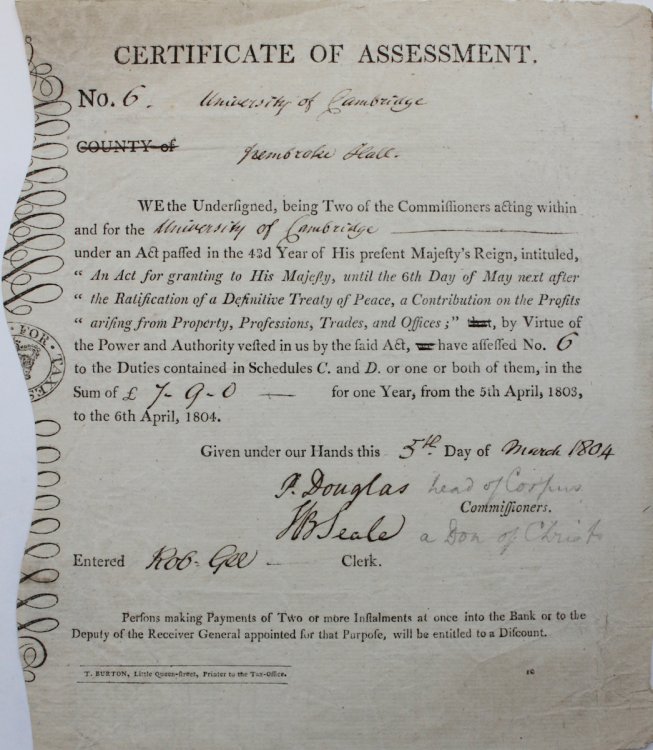 CERTIFICATE OF ASSESSMENT.
No. 6. University of Cambridge
COUNTY of Pembroke Hall.
WE the Undersigned, being Two of the Commissioners acting within
and for the University of Cambridge
under an Act passed in the 43d Year of His present Majesty's Reign, intituled,
“ An Act for granting to His Majesty, until the 6th Day of May next after
“ the Ratification of a Definitive Treaty of Peace, a Contribution on the Profits
“ arising from Property, Professions, Trades, and Offices;” that, by Virtue of
the Power and Authority vested in us by the said Act, we have assessed No. 6
to the Duties contained in Schedules C. and D. or one or both of them, in the
Sum of £ 7-9-0 — for one Year, from the 5th April, 1803,
to the 6th April, 1804.
Given under our Hands this 5th. Day of March 1804
P. Douglas head of Corpus
Commissioners.
JB Seale a Don of Christs
Entered Rob. Gee — Clerk.
Persons making Payments of Two or more Instalments at once into the Bank or to the
Deputy of the Receiver General appointed for that Purpose, will be entitled to a Discount.
T. BURTON, Little Queen-street, Printer to the Tax-Office.
10
FOR · TAXES